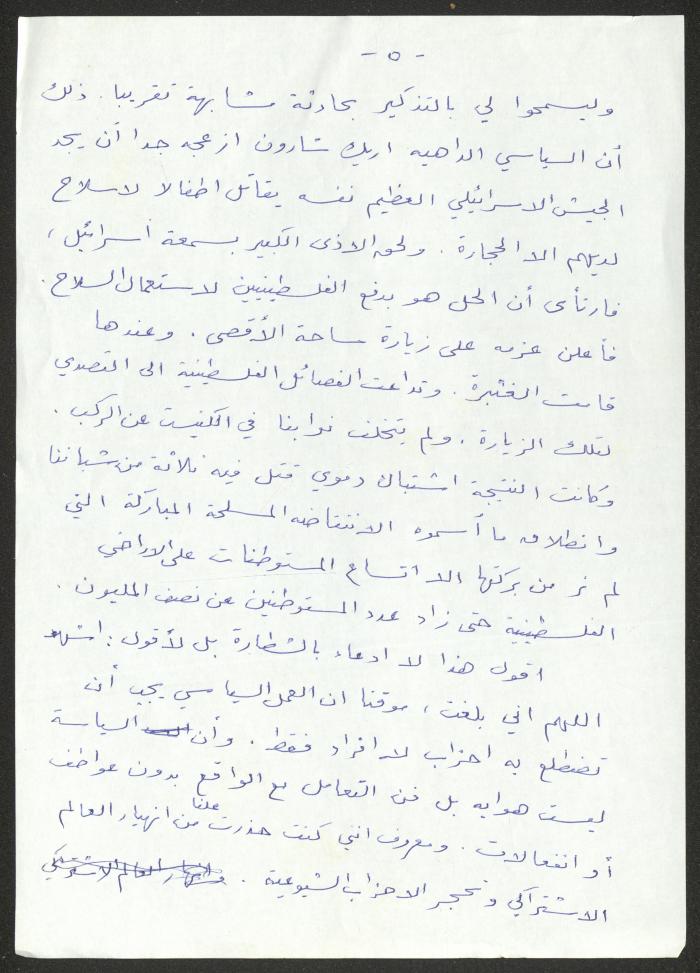 - ٥ -
وليسمحوا لي بالتذكير بحادثة مشابهة تقريبا. ذلك
أن السياسي الداهيه اريك شارون ازعجه جدا أن يجد
الجيش الاسرائيلي العظيم نفسه يقاتل اطفالا لا سلاح
لديهم الا الحجارة. ولحق الاذى الكبير بسمعة أسرائيل،
فارتأى أن الحل هو بدفع الفلسطينيين لاستعمال السلاح.
فأعلن عزمه على زيارة ساحة الأقصى. وعندها
قامت الغبرة. وتداعت الفصائل الفلسطينية الى التصدي
لتلك الزيارة. ولم يتخلف نوابنا في الكنيست عن الركب.
وكانت النتيجة اشتباك دموي قتل فيه ثلاثة من شباننا
وانطلاقه ما أسموه الانتفاضه المسلحة المباركة التي
لم نر من بركتها الا اتساع المستوطنات على الاراضي
الفلسطينية حتى زاد عدد المستوطنين عن نصف المليون.
اقول هذا لا ادعاء بالشطارة بل لأقول: اشهد
اللهم اني بلغت، موقنا ان العمل السياسي يجب أن
تضطلع به احزاب لا افراد فقط. وأن السياسة
ليست هوايه بل فن التعامل مع الواقع بدون عواطف
أو انفعالات. ومعروف انني كنت حذرت علنا من انهيار العالم
الاشتراكي وتحجر الاحزاب الشيوعية.